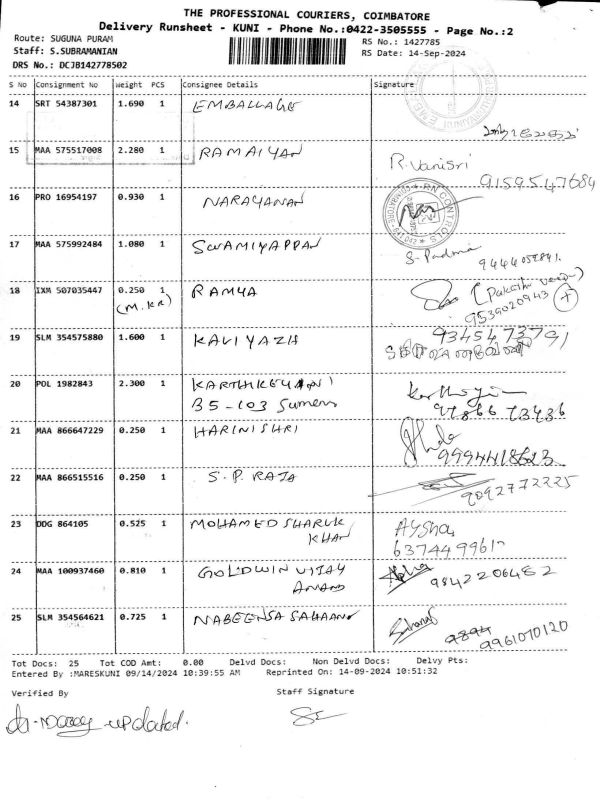 THE PROFESSIONAL COURIERS, COIMBATORE
Delivery Runsheet - KUNI - Phone No.:0422-3505555 - Page No.:2
Route: SUGUNA PURAM RS No.: 1427785
Staff: S.SUBRAMANIAN RS Date: 14-Sep-2024
DRS No.: DCJB142778502
S No Consignment No Weight PCS Consignee Details Signature
14 SRT 54387301 1.690 1 EMBALLAGE
15 MAA 575517008 2.280 1 RAMAIYAN R.Vanisri
9159547684
16 PRO 16954197 0.930 1 NARAYANAN
17 MAA 575992484 1.080 1 SWAMIYAPPAN S. Padma
18 IXM 507035447 0.250 1 RAMYA
(M.KR) 9539020943
19 SLM 354575880 1.600 1 KAVIYAZH 9345473791
20 POL 1982843 2.300 1 KARTHIKEYANI
B5-103 Sumers 97866 73436
21 MAA 866647229 0.250 1 HARINISHRI
9994418623
22 MAA 866515516 0.250 1 S.P. RAJA 9092772225
23 DDG 864105 0.525 1 MOHAMED SHARUK Aysha
KHAN
24 MAA 100937460 0.810 1 GOLDWIN VIJAY 9842206482
ANAND
25 SLM 354564621 0.725 1
9961070120
Tot Docs: 25 Tot COD Amt: 0.00 Delvd Docs: Non Delvd Docs: Delvy Pts:
Entered By :MARESKUNI 09/14/2024 10:39:55 AM Reprinted On: 14-09-2024 10:51:32
Verified By Staff Signature
updated.